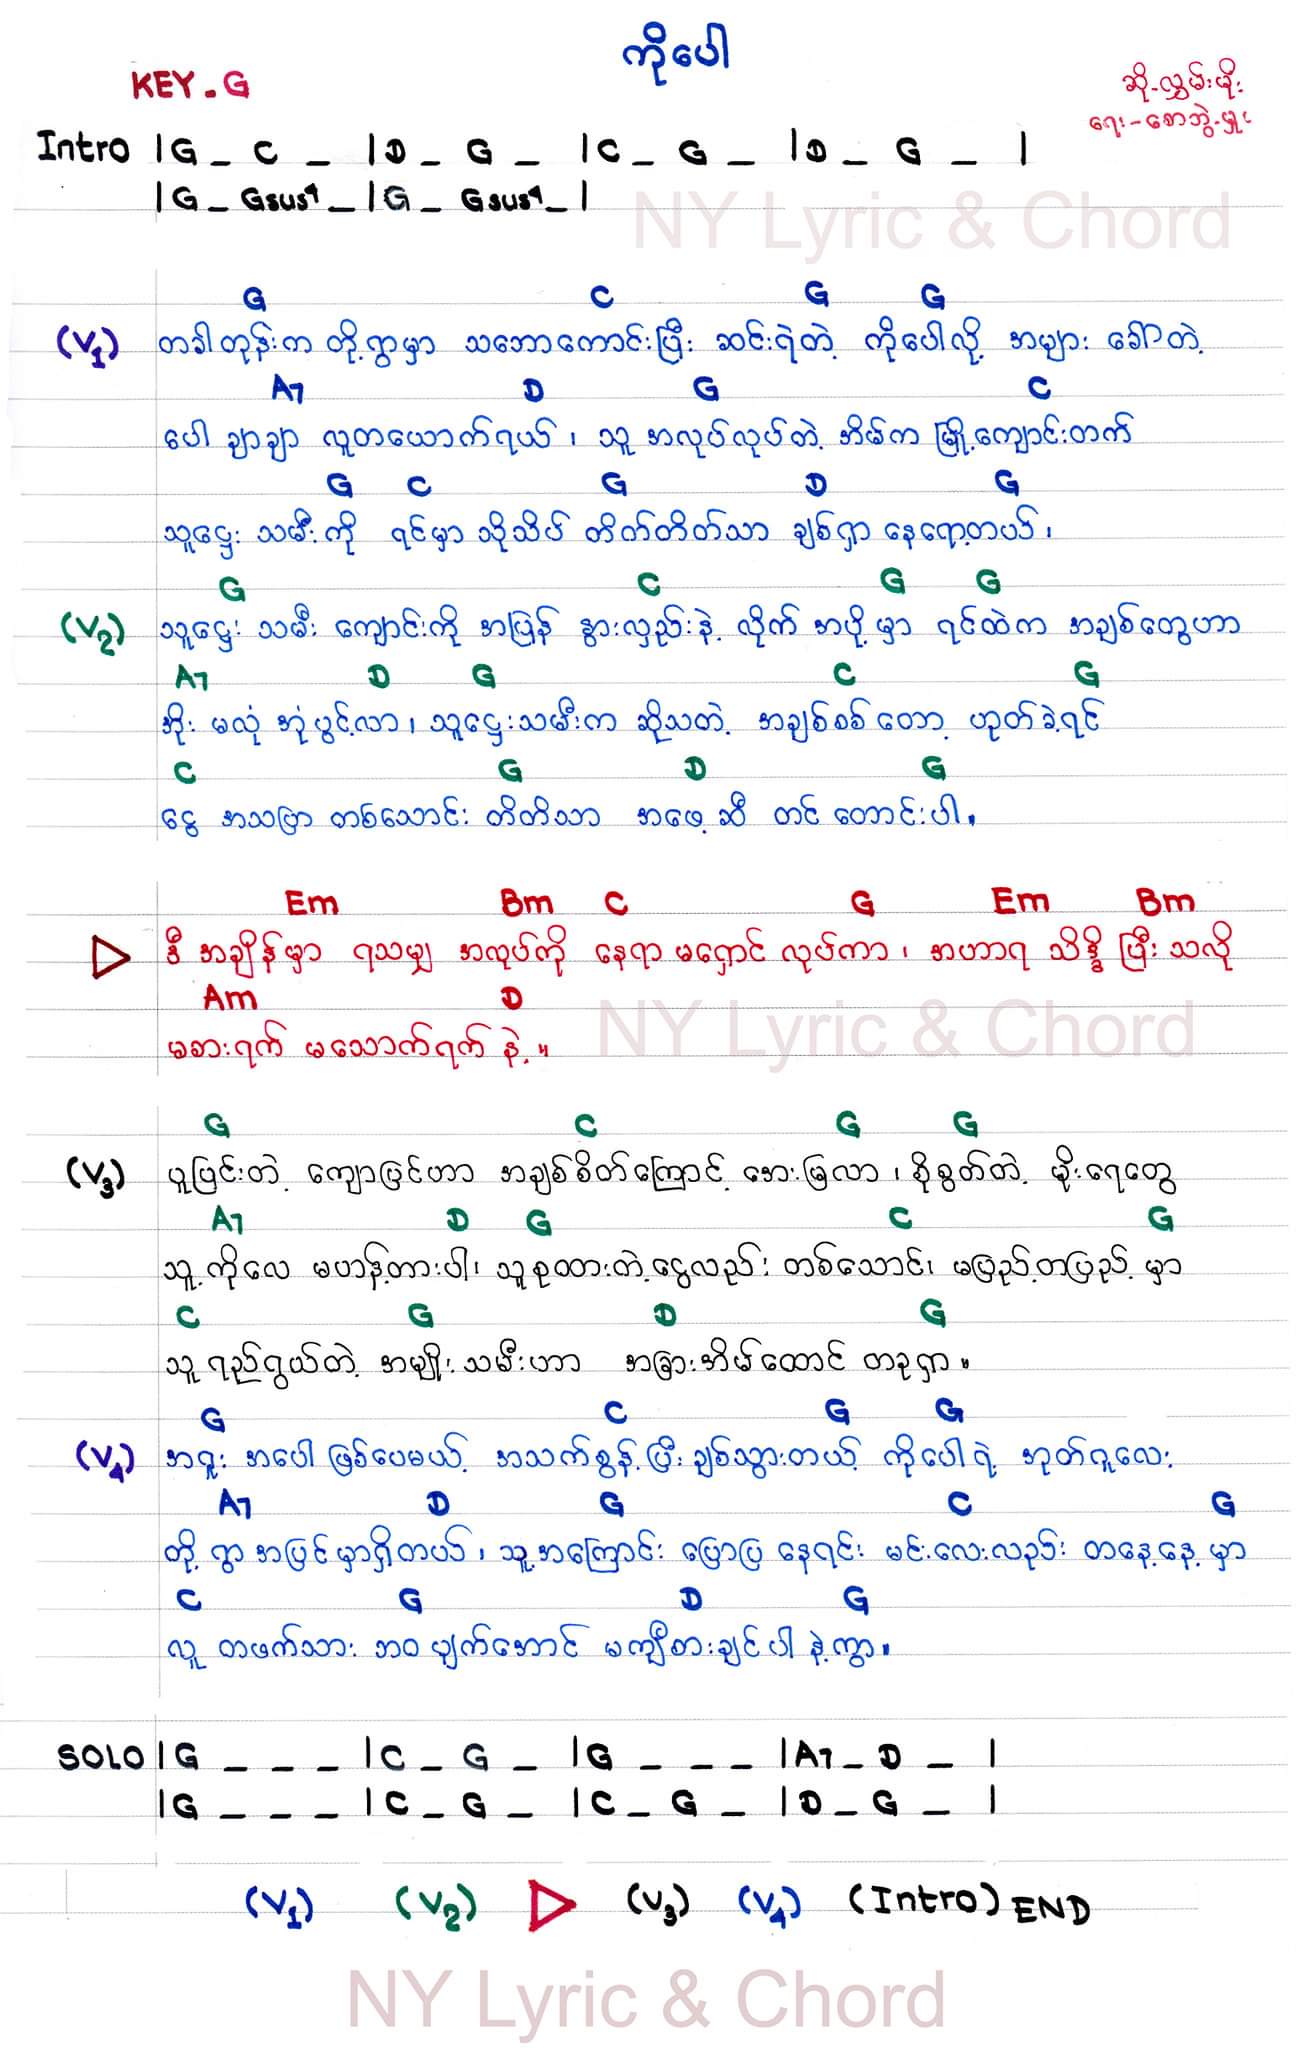 ကိုပေါ
KEY-G
ဆို-လွှမ်းမိုး
ရေး-စောဘွဲ့မှူး
Intro |G _ C _ |D _ G _ |C _ G _ |D _ G _ |
|G _ Gsus4 _ |G _ Gsus4 _ |
NY Lyric & Chord
G C G G
(V1) တခါတုန်းက တို့ရွာမှာ သဘောကောင်းပြီး ဆင်းရဲတဲ့ ကိုပေါလို့ အများ ခေါ်တဲ့
A7 D G C
ပေါ ချာချာ လူတယောက်ရယ်၊ သူ အလုပ်လုပ်တဲ့ အိမ်က မြို့ကျောင်းတက်
G C G D G
သူဌေး သမီးကို ရင်မှာ သိုသိပ် တိတ်တိတ်သာ ချစ်ရှာ နေရော့တယ်၊
G C G G
(V2) သူဌေး သမီး ကျောင်းကို အပြန် နွားလှည်းနဲ့ လိုက် အပို့ မှာ ရင်ထဲက အချစ်တွေဟာ
A7 D G C G
အိုး မလုံ အုံပွင့်လာ၊ သူဌေးသမီးက ဆိုသတဲ့ အချစ်စစ် တော့ ဟုတ်ခဲ့ရင်
C G D G
ငွေ အသပြာ တစ်သောင်း တိတိသာ အဖေ့ ဆီ တင် တောင်းပါ။
Em Bm C G Em Bm
▷ ဒီ အချိန်မှာ ရသမျှ အလုပ်ကို နေရာ မရှောင် လုပ်ကာ၊ အဟာရ သိဒ္ဓိ ပြီး သလို
Am D
မစားရက် မသောက်ရက် နဲ့။
NY Lyric & Chord
G C G G
(V3) ပူပြင်းတဲ့ ကျောပြင်ဟာ အချစ်စိတ်ကြောင့် အေးမြလာ၊ စိုစွတ်တဲ့ မိုးရေတွေ
A7 D G C G
သူ့ကိုလေ မဟန့်တားပါ၊ သူစုထားတဲ့ငွေလည်း တစ်သောင်း၊ မပြည့်တပြည့် မှာ
C G D G
သူ ရည်ရွယ်တဲ့ အမျိုးသမီးဟာ အခြားအိမ်ထောင် တခုရှာ။
G C G G
(V4) အရူး အပေါ ဖြစ်ပေမယ့် အသက်စွန့် ပြီး ချစ်သွားတယ့် ကိုပေါရဲ့ အုတ်ဂူလေး
A7 D G C G
တို့ ရွာ အပြင် မှာရှိတယ်၊ သူ့အကြောင်း ပြောပြ နေရင်း မင်းလေးလည်း တနေ့နေ့ မှာ
C G D G
လူ တဖက်သား ဘဝ ပျက်အောင် မကျီစားချင်ပါ နဲ့ကွာ။
SOLO |G _ _ _ |C _ G _ |G _ _ _ |A7 _ D _ |
|G _ _ _ |C _ G _ |C _ G _ |D _ G _ |
(V1) (V2) ▷ (V3) (V4) (Intro) END
NY Lyric & Chord